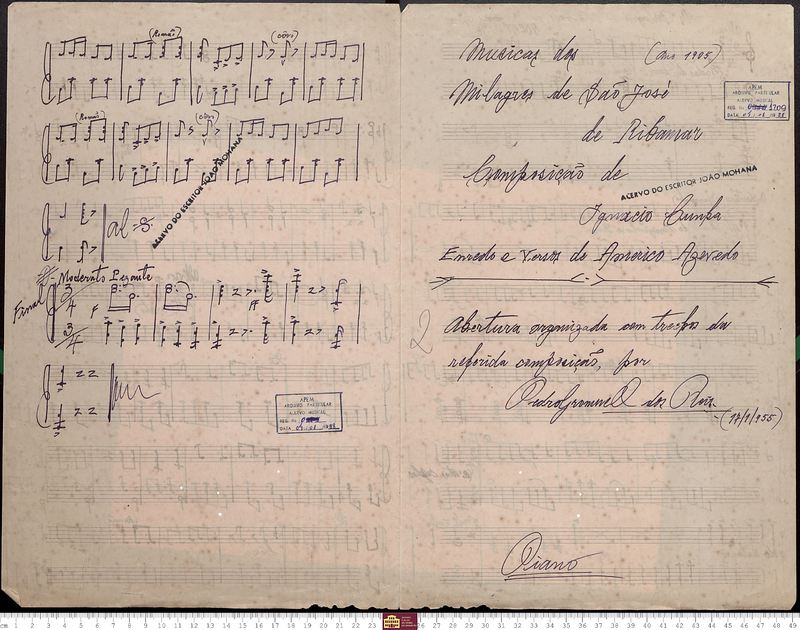 (Romão)
(côro)
(Romão)
(côro)
al
ACERVO DO ESCRITOR JOÃO MOHANA
Final
Moderato Pezante
3
4
3
4
F
ff
APEM
ARQUIVO PARTICULAR
ACERVO MUSICAL
REG. No
DATA
Musicas dos (Ano 1905)
Milagres de São José
de Ribamar
Composição de
ACERVO DO ESCRITOR JOÃO MOHANA
Ignacio Cunha
Enredo e Versos de Americo Azevedo
APEM
ARQUIVO PARTICULAR
ACERVO MUSICAL
REG. No 1209
DATA
2
Abertura organizada com trechos da
referida composição, por
Pedro Gromwell dos Reis.
(17/9/955)
Piano
cm 1 2 3 4 5 6 7 8 9 10 11 12 13 14 15 16 17 18 19 20 21 22 23 26 27 28 29 30 31 32 33 34 35 36 37 38 39 40 41 42 43 44 45 46 47 48 49